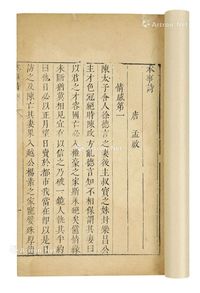 本事詩
唐 孟啟
情感第一
陳太子舍人徐德言之妻後主叔寶之妹封樂昌公
主才色冠絕時陳政方亂德言知不相保謂其妻曰
以君之才容國亡必入權豪之家斯永絕矣儻情緣
未斷猶冀相見宜有以信之乃破一鏡人執其半約
曰他日必以正月望日賣於都市我當在即以是日
訪之及陳亡其妻果入越公楊素之家寵嬖殊厚